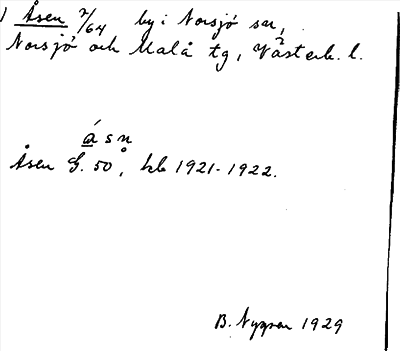 1) Åsen 7/64 by i Norsjö sn,
Norsjö och Malå tg, Västerb. l.
ásn̥
Åsen G. 50, hb 1921-1922.
1929